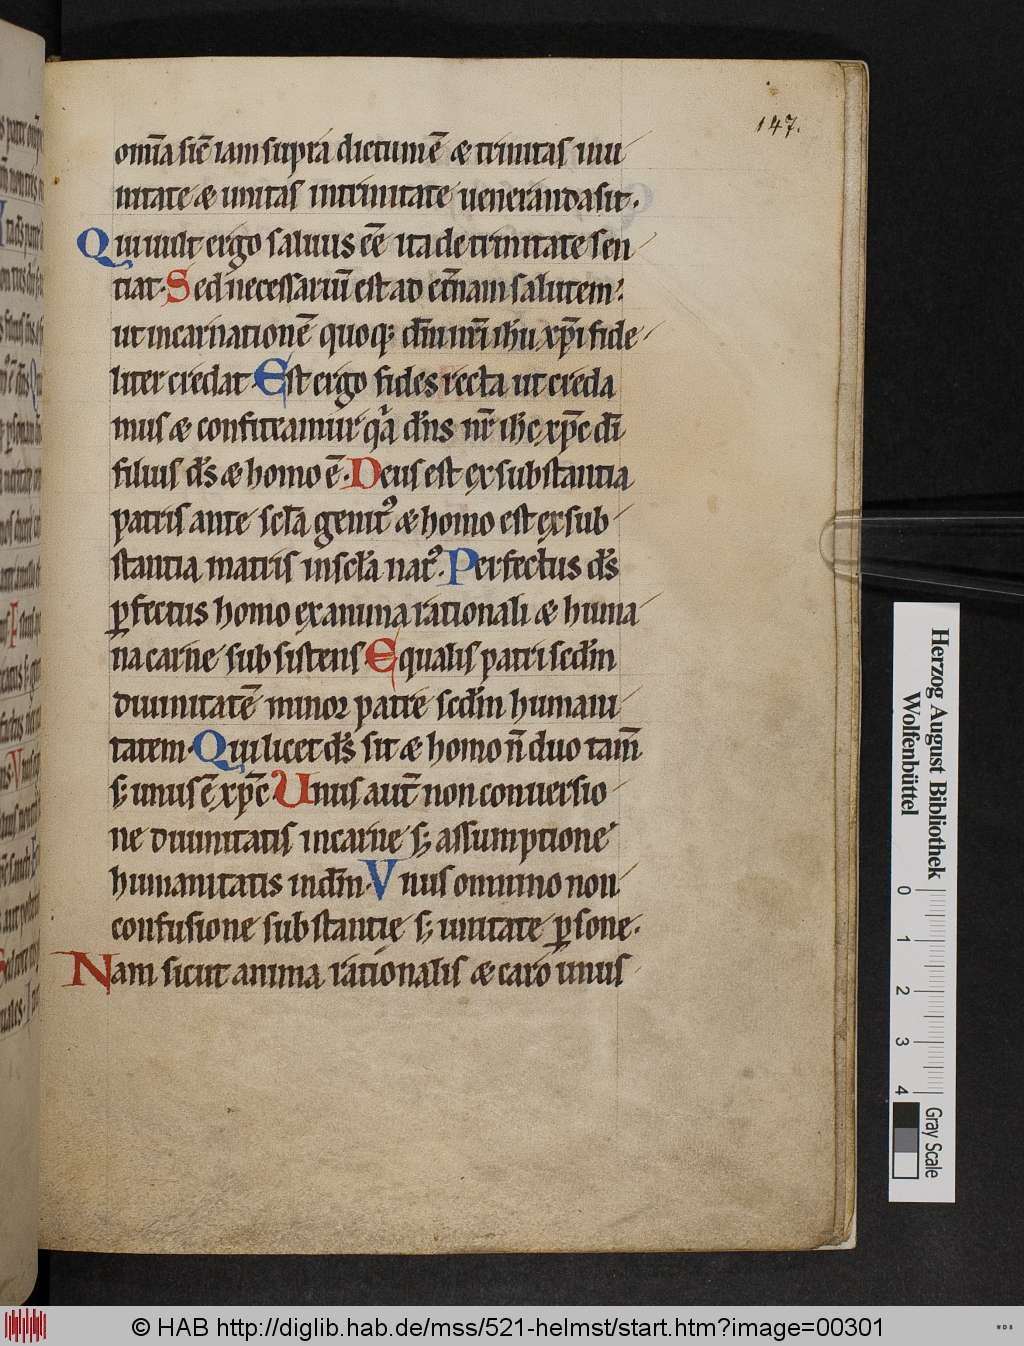 147.
om̄a sic̄ iam supra dictum ē & trinitas in u
nitate & unitas in trinitate ueneranda sit.
Qui uult ergo saluus eē ita de trinitate sen
tiat. Sed necessariū est ad et̄nam salutem:
ut incarnationē quoq; dn̄i nr̄i ihū xp̄i fide
liter credat. Est ergo fides recta ut creda
mus & confiteamur q̄a dn̄s nr̄ ihc̄ xp̄c dī
filius ds̄ & homo ē. Deus est ex substantia
patris ante scl̄a genit᾽ & homo est ex sub
stantia matris in scl̄a nat᾽. Perfectus ds̄
ꝑfectus homo ex anima rationali & huma
na carne subsistens. Equalis patri scdm̄
diuinitatē minor patre scdm̄ humani
tatem. Qui licet ds̄ sit & homo n̄ duo tam̄
s; unus ē xp̄c. Unus aut̄ non conuersio
ne diuinitatis in carne s; assumptione
humanitatis in dm̄. Vnus omnino non
confusione substantię s; unitate ꝑsone.
Nam sicut anima rationalis & caro unus
Herzog August Bibliothek
Wolfenbüttel
0 1 2 3 4
Gray Scale
© HAB http://diglib.hab.de/mss/521-helmst/start.htm?image=00301